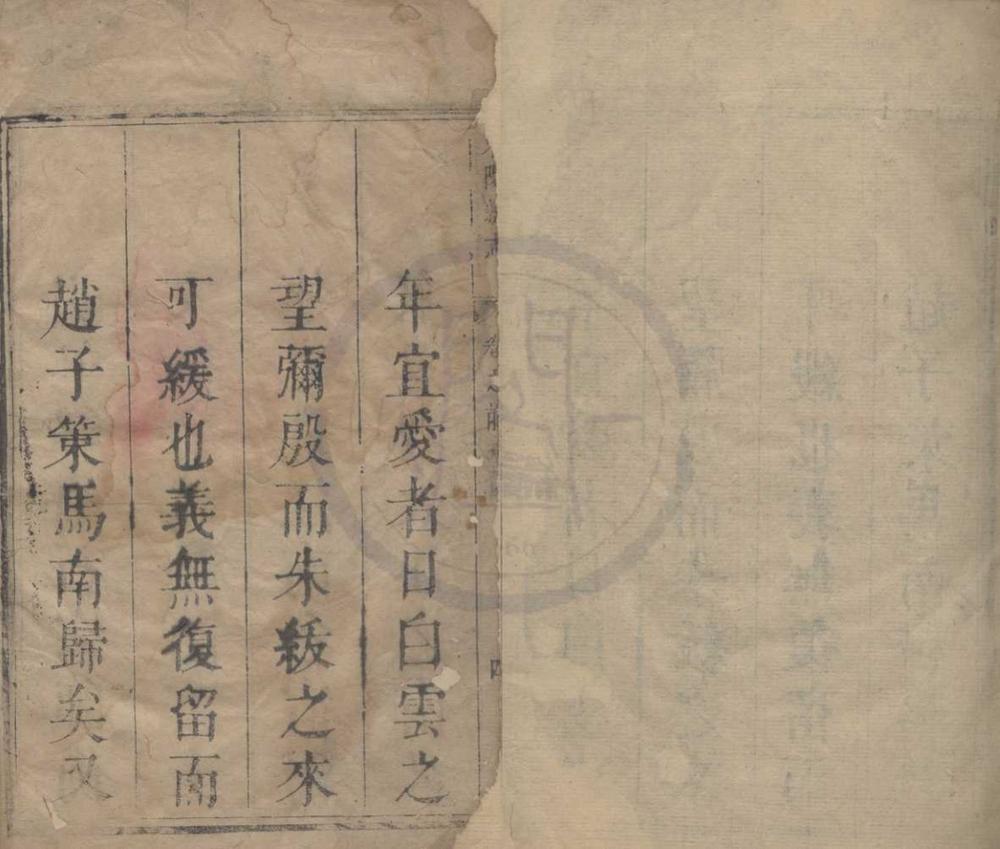 年宜愛者日白雲之
望彌殷而朱紱之來
可緩也義無復留而
趙子策馬南歸矣又
四